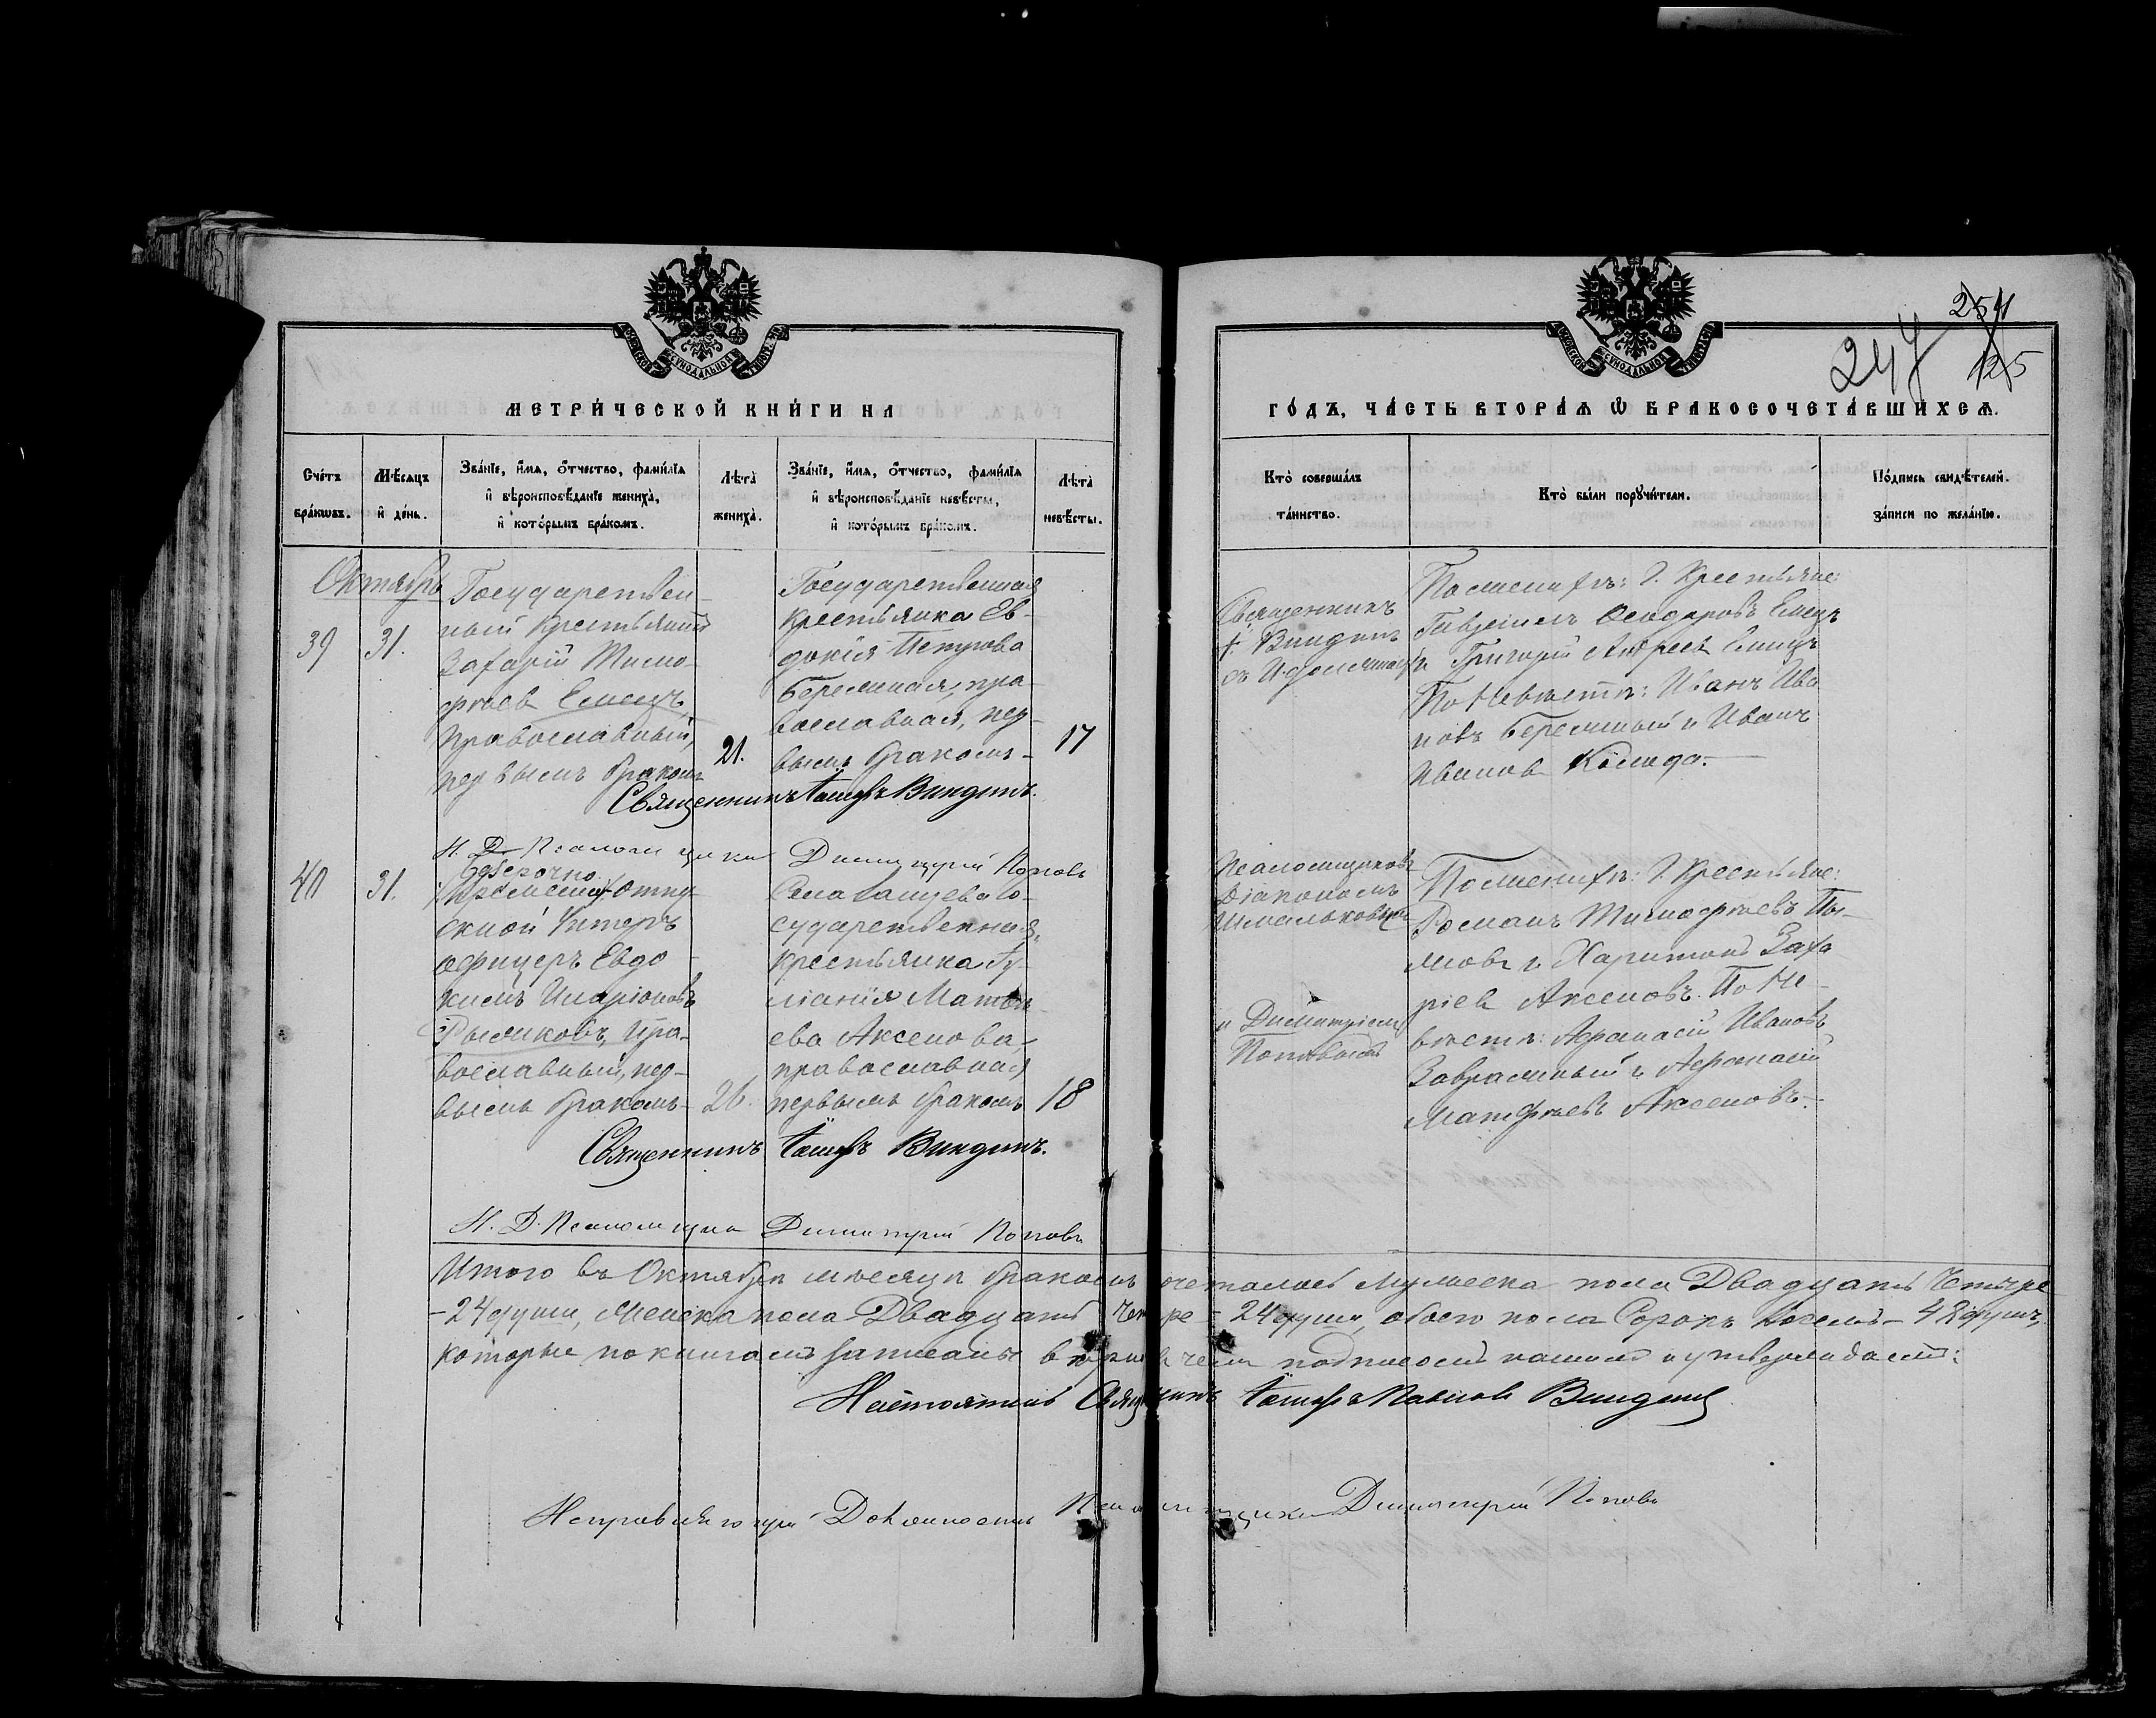 254
244
125
МЕТРИЧЕСКОЙ КНИГИ НА
Счетъ браковъ.
Мѣсяцъ и день.
Званіе, имя, отчество, фамилія и вѣроисповѣданіе жениха, и которымъ бракомъ.
Лѣта жениха.
Званіе, имя, отчество, фамилія и вѣроисповѣданіе невѣсты, и которымъ бракомъ.
Лѣта невѣсты.
ГОДЪ, ЧАСТЬ ВТОРАЯ Ѡ БРАКОСОЧЕТАВШИХСЯ.
Кто совершалъ таинство.
Кто были поручители.
Подпись свидѣтелей записи по желанію.
Октябрь
39
31.
Государствен-
ный Крестьянинъ
Захарій Тимо-
фѣевъ Емецъ,
Православный,
первымъ бракомъ
21.
Государственная
крестьянка Ев-
докія Петрова
Беремная, пра-
вославная, пер-
вымъ бракомъ-
17
Священникъ
Виндинъ
По женихѣ: Г. Крестьяне:
Гавріилъ Феодоровъ Емецъ
и Григорій Андреевъ Емецъ
По Невѣстѣ: Иванъ Ива
новъ Беремный и Иванъ
Ивановъ
Священникъ Виндинъ.
И. Д. Псаломщика Димитрій Поповъ
40
31.
безсрочно
отпу-
скной Унтеръ
офицеръ Евдо-
кимъ Иларіоновъ
Рыжковъ, Пра-
вославный, пер-
вымъ бракомъ-
26.
Села Го-
сударственная
крестьянка Іу-
ліанія Матѳѣ-
ева Аксенова,
православная
первымъ бракомъ
18
Псаломщикомъ
Діакономъ
и Димитріемъ
Поповымъ
По женихѣ: Г. Крестьяне:
Романъ Тимофѣевъ
и Харитонъ Заха
ріевъ Аксеновъ. По Не-
вѣстѣ: Афанасій Ивановъ
и Афанасій
Матфѣевъ Аксеновъ.-
Священникъ Виндинъ.
И. Д. Псаломщика Димитрій Поповъ
Итого въ Октябрѣ мѣсяцѣ бракомъ сочеталось Мужеска пола Двадцать Четыре
- 24 души, Женска пола Двадцать Четыре - 24 души, обоего пола Сорокъ Восемь - 48 душъ,
которые по книгамъ записаны вѣрно въ чемъ подписомъ нашимъ и утверждаемъ:
Настоятель Священникъ Павловъ Виндинъ
Исправляющій Должность Псаломщика Димитрій Поповъ